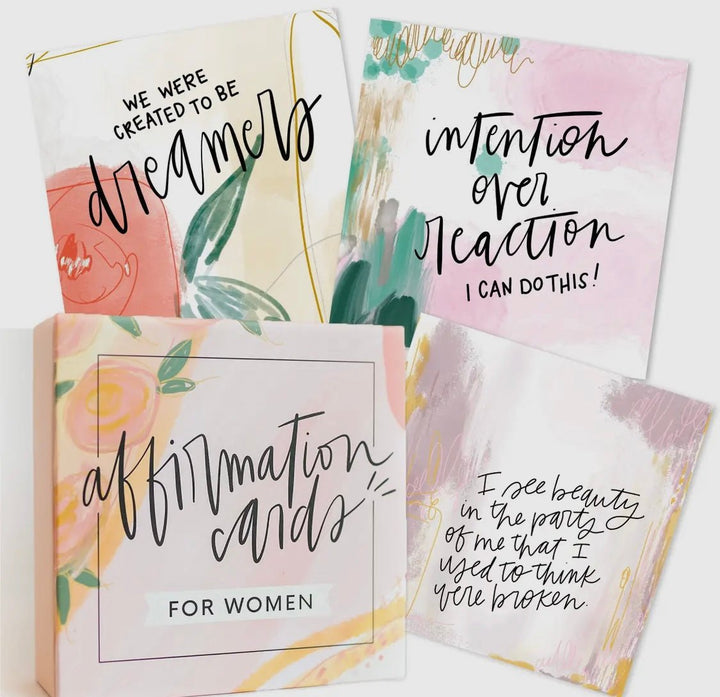 WE WERE
CREATED TO BE
dreamers
intention
over
reaction
I CAN DO THIS!
affirmation
cards
FOR WOMEN
I see beauty
in the parts
of me that I
used to think
were broken.